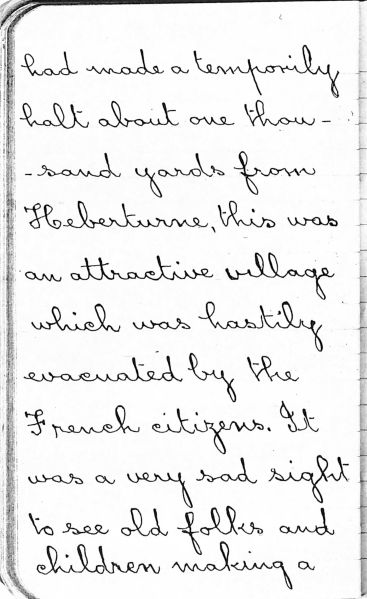 had made a temporily
halt about one thou-
-sand yards from
Heberturne, this was
an attractive village
which was hastily
evacuated by the
French citizens. It
was a very sad sight
to see old folks and
children making a